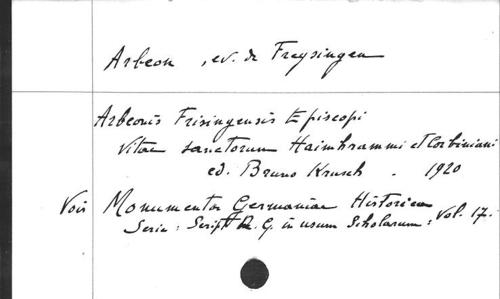 Arbeon, ev. de Freysingen
Arbeonis Frisingensis Episcopi
Vitae sanctorum Haimhrammi et Corbiniani
ed. Bruno Krusch. 1920
Voir Monumenta Germaniae Historica
Serie: Script R. G. in usum Scholarum: Vol. 17.